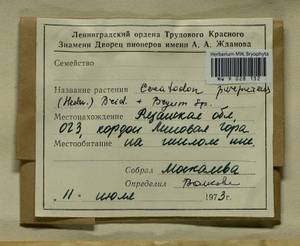 Ленинградский ордена Трудового Красного
Знамени Дворец пионеров имени А. А. Жданова
Herbarium MW, Bryophyta
MW 9 028 132
Семейство
Название растения Ceratodon purpureus
(Hedw.) Brid. + Bryum sp.
Местонахождение Рязанская обл,
ОГЗ, кордон Липовая гора
Местообитание на гнилом пне.
Собрал Москалева
Определил
" 11 " июля 1973 г.